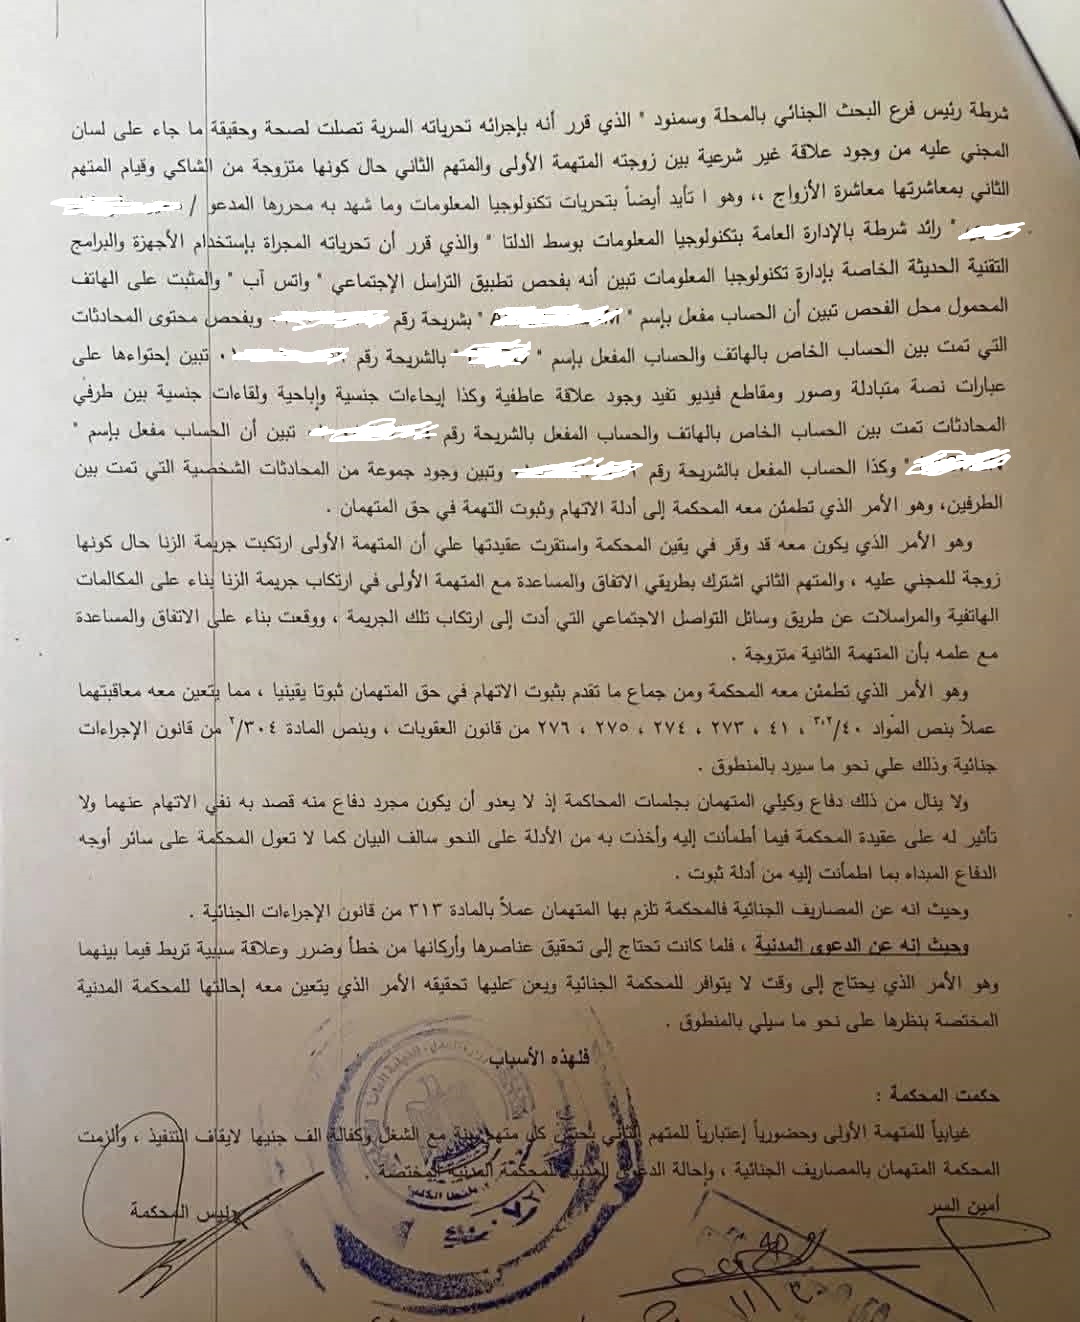 شرطة رئيس فرع البحث الجنائي بالمحلة وسمنود " الذي قرر أنه بإجرائه تحرياته السرية تصلت لصحة وحقيقة ما جاء على لسان
المجني عليه من وجود علاقة غير شرعية بين زوجته المتهمة الأولى والمتهم الثاني حال كونها متزوجة من الشاكي وقيام المتهم
الثاني بمعاشرتها معاشرة الأزواج ،، وهو ا تأيد أيضاً بتحريات تكنولوجيا المعلومات وما شهد به محررها المدعو /
" رائد شرطة بالإدارة العامة بتكنولوجيا المعلومات بوسط الدلتا " والذي قرر أن تحرياته المجراة بإستخدام الأجهزة والبرامج
التقنية الحديثة الخاصة بإدارة تكنولوجيا المعلومات تبين أنه بفحص تطبيق التراسل الإجتماعي " واتس آب " والمثبت على الهاتف
المحمول محل الفحص تبين أن الحساب مفعل بإسم " " بشريحة رقم وبفحص محتوى المحادثات
التي تمت بين الحساب الخاص بالهاتف والحساب المفعل بإسم " " بالشريحة رقم تبين إحتواءها على
عبارات نصة متبادلة وصور ومقاطع فيديو تفيد وجود علاقة عاطفية وكذا إيحاءات جنسية وإباحية ولقاءات جنسية بين طرفي
المحادثات تمت بين الحساب الخاص بالهاتف والحساب المفعل بالشريحة رقم تبين أن الحساب مفعل بإسم "
" وكذا الحساب المفعل بالشريحة رقم وتبين وجود جموعة من المحادثات الشخصية التي تمت بين
الطرفين، وهو الأمر الذي تطمئن معه المحكمة إلى أدلة الاتهام وثبوت التهمة في حق المتهمان .
وهو الأمر الذي يكون معه قد وقر في يقين المحكمة واستقرت عقيدتها علي أن المتهمة الأولى ارتكبت جريمة الزنا حال كونها
زوجة للمجني عليه ، والمتهم الثاني اشترك بطريقي الاتفاق والمساعدة مع المتهمة الأولى في ارتكاب جريمة الزنا بناء على المكالمات
الهاتفية والمراسلات عن طريق وسائل التواصل الاجتماعي التي أدت إلى ارتكاب تلك الجريمة ، ووقعت بناء على الاتفاق والمساعدة
مع علمه بأن المتهمة الثانية متزوجة .
وهو الأمر الذي تطمئن معه المحكمة ومن جماع ما تقدم بثبوت الاتهام في حق المتهمان ثبوتا يقينيا ، مما يتعين معه معاقبتهما
عملاً بنص المواد ٤٠/٢،٣ ، ٤١ ، ٢٧٣ ، ٢٧٤ ، ٢٧٥ ، ٢٧٦ من قانون العقوبات ، وبنص المادة ٣٠٤/٢ من قانون الإجراءات
جنائية وذلك علي نحو ما سيرد بالمنطوق .
ولا ينال من ذلك دفاع وكيلي المتهمان بجلسات المحاكمة إذ لا يعدو أن يكون مجرد دفاع منه قصد به نفي الاتهام عنهما ولا
تأثير له على عقيدة المحكمة فيما أطمأنت إليه وأخذت به من الأدلة على النحو سالف البيان كما لا تعول المحكمة على سائر أوجه
الدفاع المبداه بما اطمأنت إليه من أدلة ثبوت .
وحيث انه عن المصاريف الجنائية فالمحكمة تلزم بها المتهمان عملاً بالمادة ٣١٣ من قانون الإجراءات الجنائية .
وحيث إنه عن الدعوى المدنية ، فلما كانت تحتاج إلى تحقيق عناصرها وأركانها من خطأ وضرر وعلاقة سببية تربط فيما بينهما
وهو الأمر الذي يحتاج إلى وقت لا يتوافر للمحكمة الجنائية ويعن عليها تحقيقه الأمر الذي يتعين معه إحالتها للمحكمة المدنية
المختصة بنظرها على نحو ما سيلي بالمنطوق .
فلهذه الأسباب
حكمت المحكمة :
غيابياً للمتهمة الأولى وحضورياً إعتبارياً للمتهم الثاني بحبس كل متهم سنة مع الشغل وكفالة الف جنيها لايقاف التنفيذ ، وألزمت
المحكمة المتهمان بالمصاريف الجنائية ، وإحالة الدعوى المدنية للمحكمة المدنية المختصة .
أمين السر
رئيس المحكمة